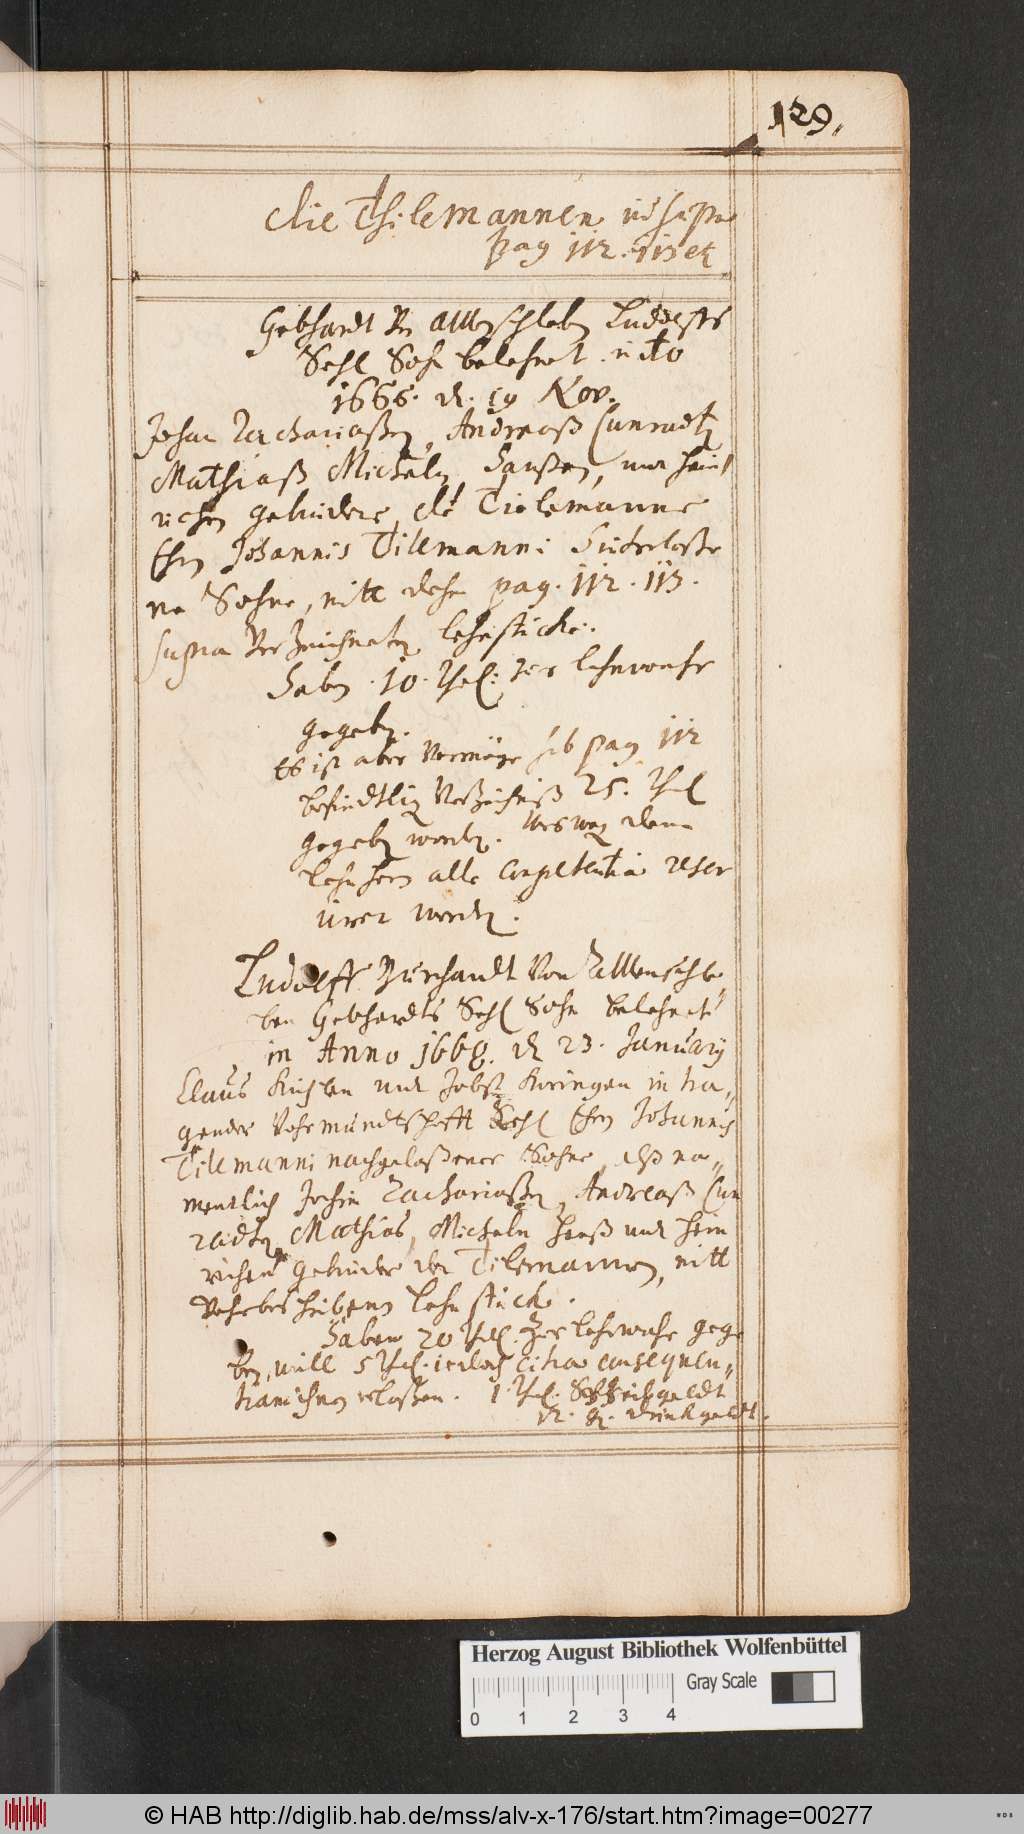 129.
die Thilemannen vid supra
pag 112. 113 et
Gebhardt Von Alvenschleben Ludolffs
Sehl Sohn belehnet in Ao
1666. d. 19 Nov.
Johan Zachariaßen, Andreaß Cunradt
Mathiaß Micheln, Hanßen, und Hein
richen gebrudere, die Tielemanne
Ehrn Johannis Tillmanni hinterlaße
ne Sohne, mitt dehn pag. 112. 113.
supra Verzeichneten lehnstücke.
Haben 10. Thl: zur lehnwahr
gegeben.
Es ist aber Vermöge pag 112
befindtlig Verzeichniß 25. Thl
gegeben worden. Weswegen dem
lehnhern alle competentia reser
viret worden.
Ludolff Burchardt Von Alvenschle
ben Gebhardts Sehl Sohn belehnet
in Anno 1668. d 23. January
Clauß Kuhlen und Jobst Koringen in tra
gender Vohrmundtschafft Sehl Ehrn Johannis
Tillmanni nachgelaßener Sohne, alß na
mentlich Johan Zachariaßen, Andreaß Cun
radten, Mathias, Micheln Hanß und Hein
richen Gebrudere der Tilemannen, mitt
Vohrbeschribenen lehnstück.
Haben 20 Thl. zur lehnwahr gege
ben, will 5 Thl. iedoch citra consequen
tiam ihnen erlaßen. 1 Thl. Schreibgeldt
drinkgeldt.
Herzog August Bibliothek Wolfenbüttel
Gray Scale
0 1 2 3 4
© HAB http://diglib.hab.de/mss/alv-x-176/start.htm?image=00277